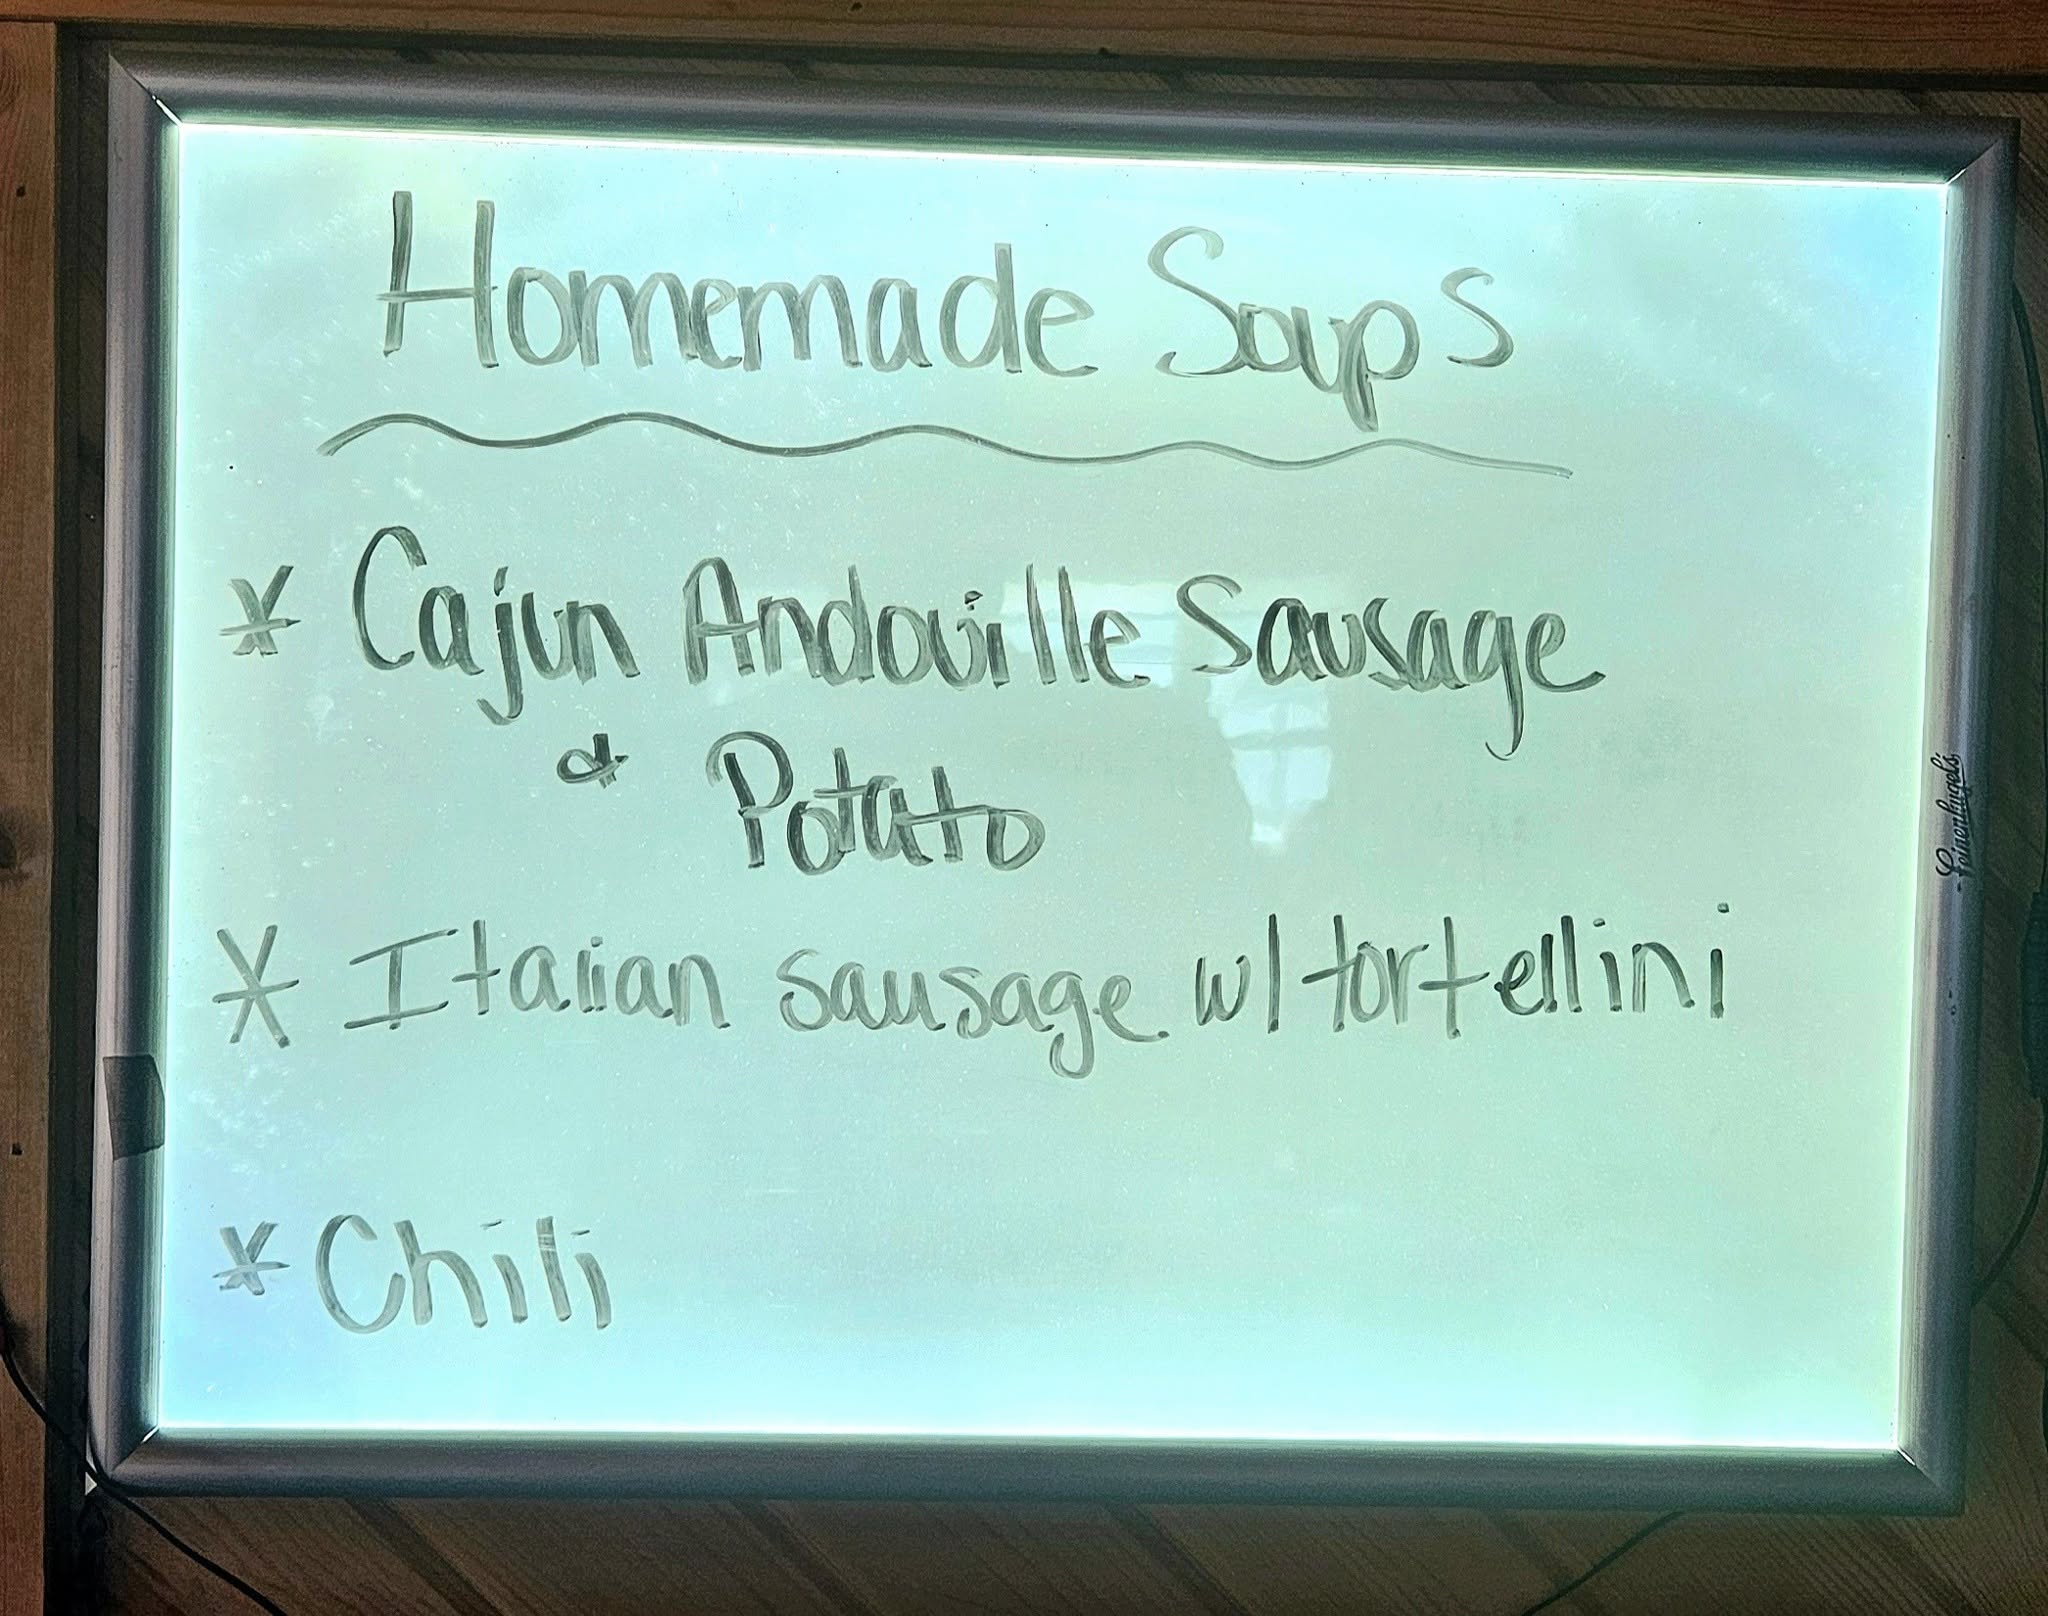 Homemade Soups
* Cajun Andouille Sausage
& Potato
* Italian sausage w/ tortellini
* Chili
Leinenkugel's